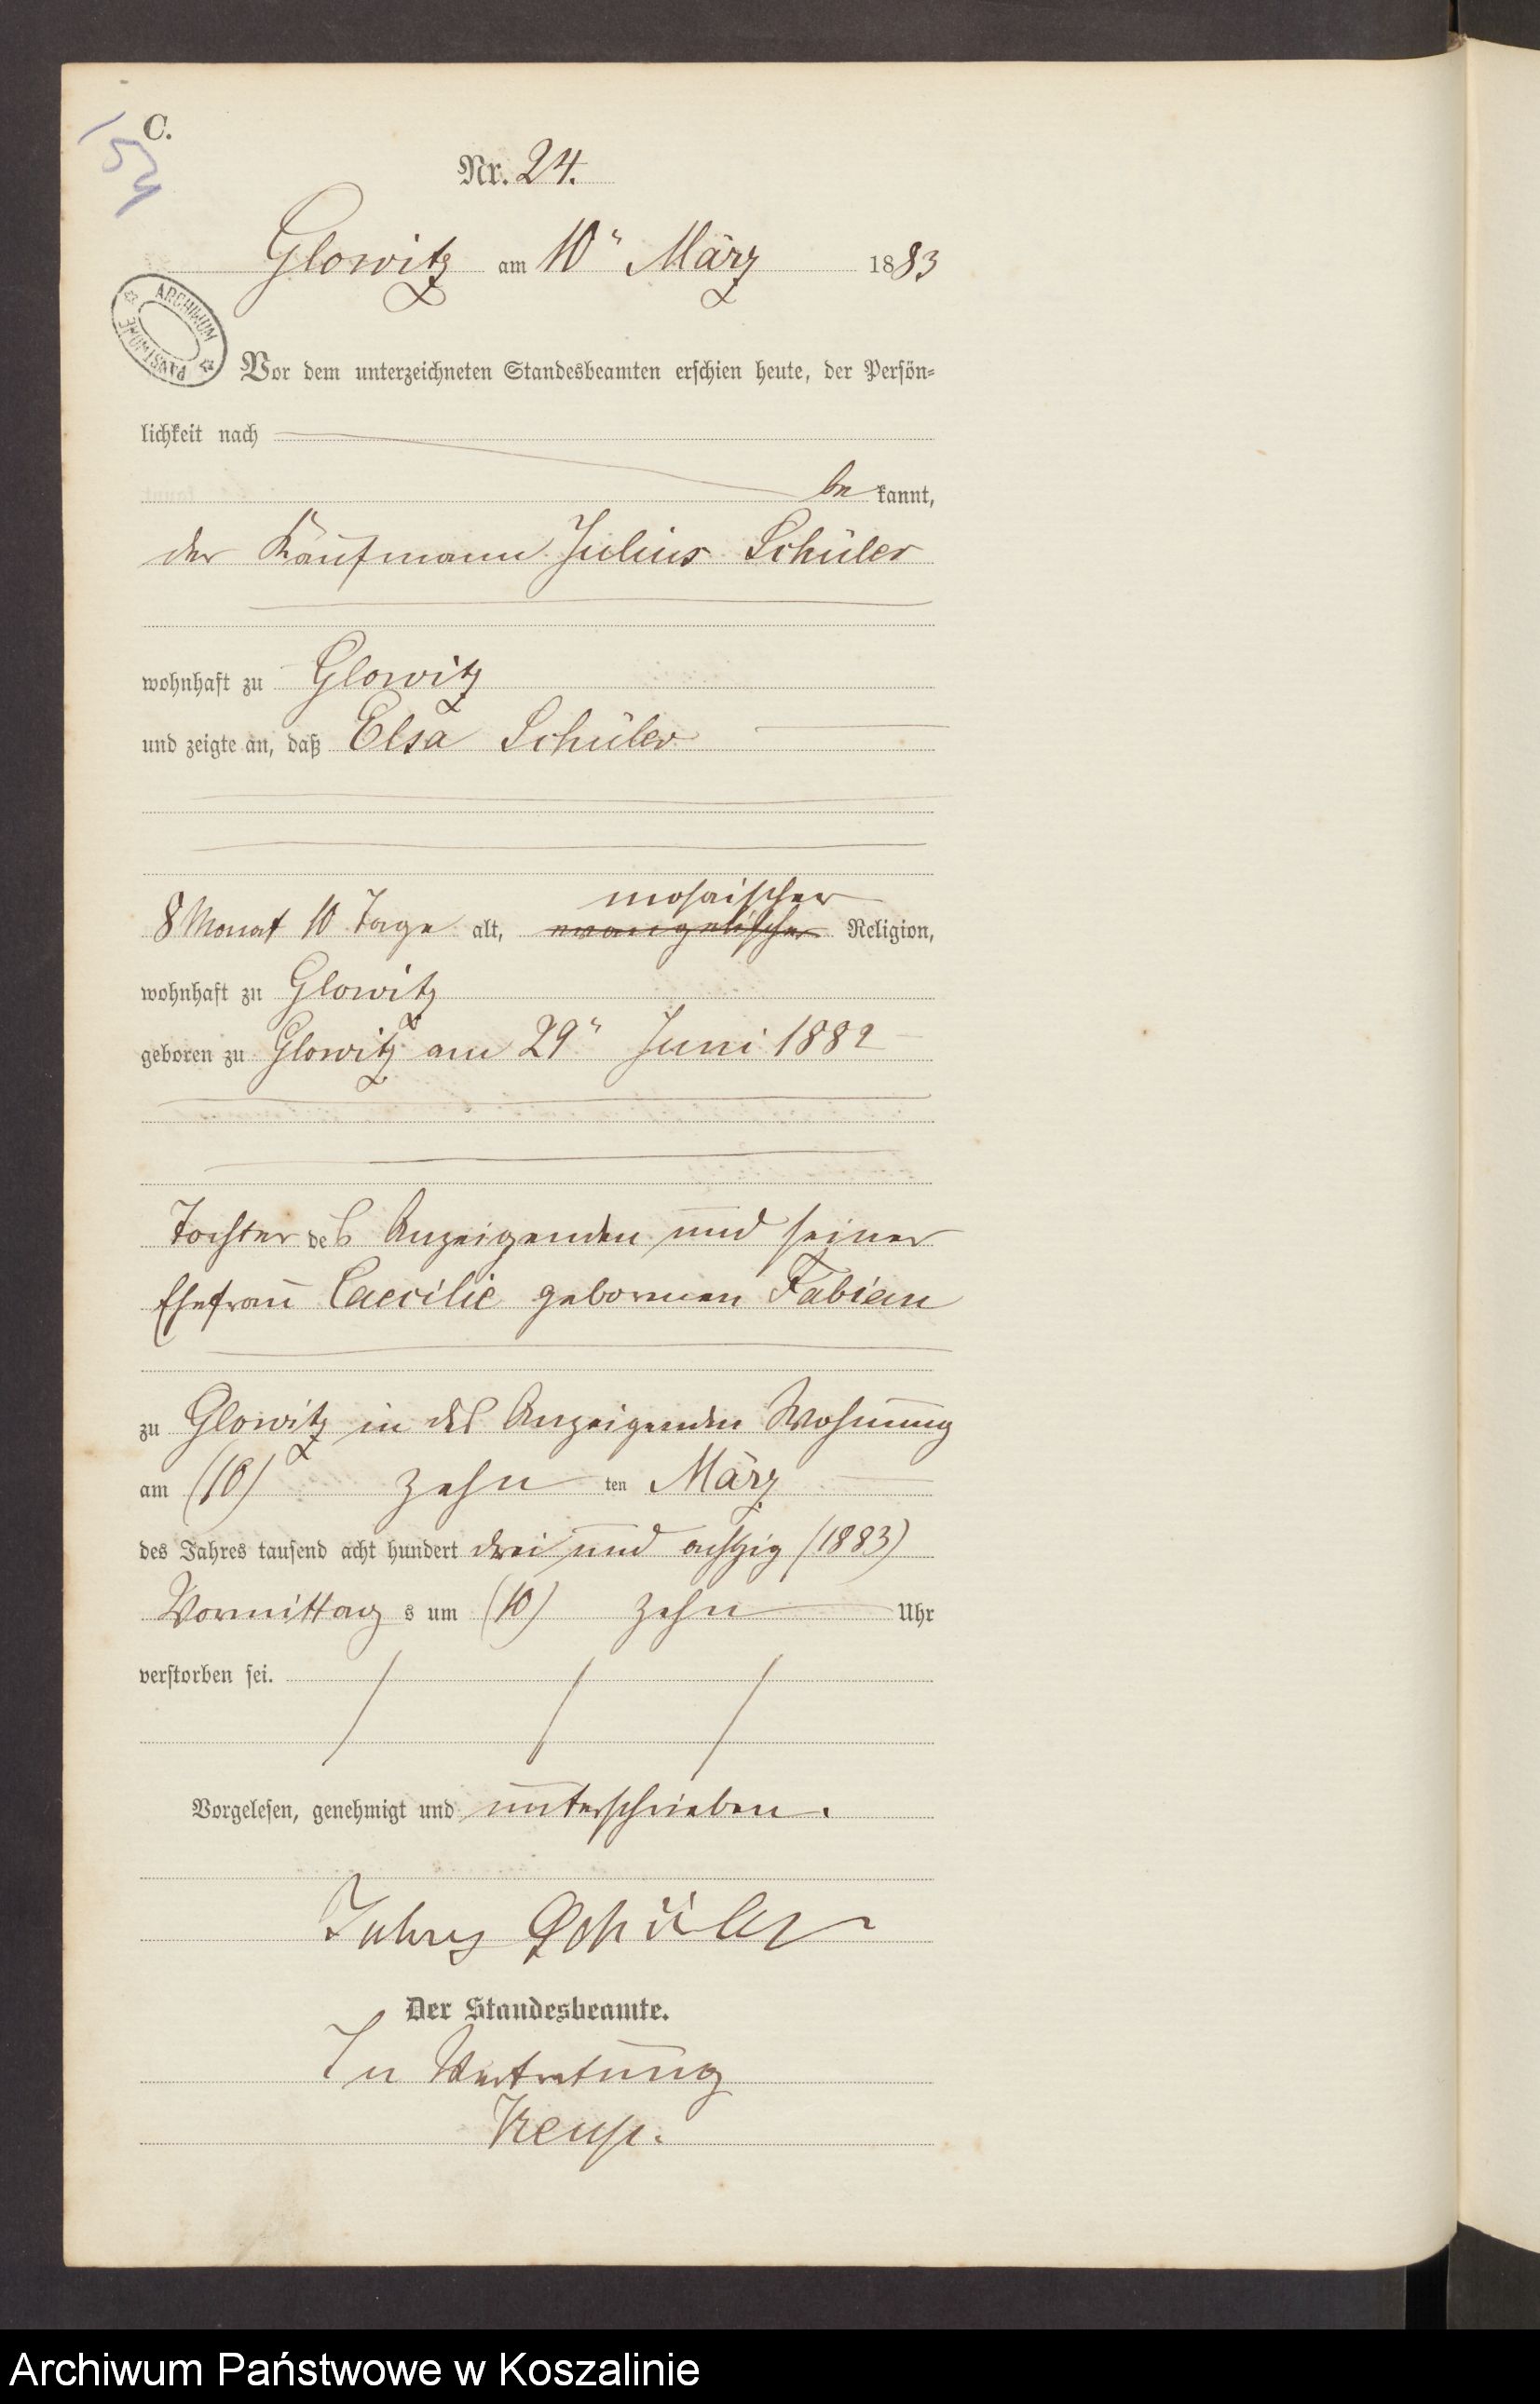 C.
154
Nr. 24.
Glowitz am 10" März 1883
ARCHIWUM PAŃSTWOWE
Vor dem unterzeichneten Standesbeamten erschien heute, der Persön-
lichkeit nach
be kannt,
der Kaufmann Julius Schüler
wohnhaft zu Glowitz
und zeigte an, daß Elsa Schüler
mosaischer
8 Monat 10 Tage alt, evangelischer Religion,
wohnhaft zu Glowitz
geboren zu Glowitz am 29" Juni 1882
Tochter des Anzeigenden und seiner
Ehefrau Caecilie gebornen Fabian
zu Glowitz in des Anzeigenden Wohnung
am (10) zehn ten März
des Jahres tausend acht hundert drei und achtzig (1883)
Vormittag s um (10) zehn Uhr
verstorben sei.
Vorgelesen, genehmigt und unterschrieben.
Julius Schüler
Der Standesbeamte.
In Vertretung
Archiwum Państwowe w Koszalinie